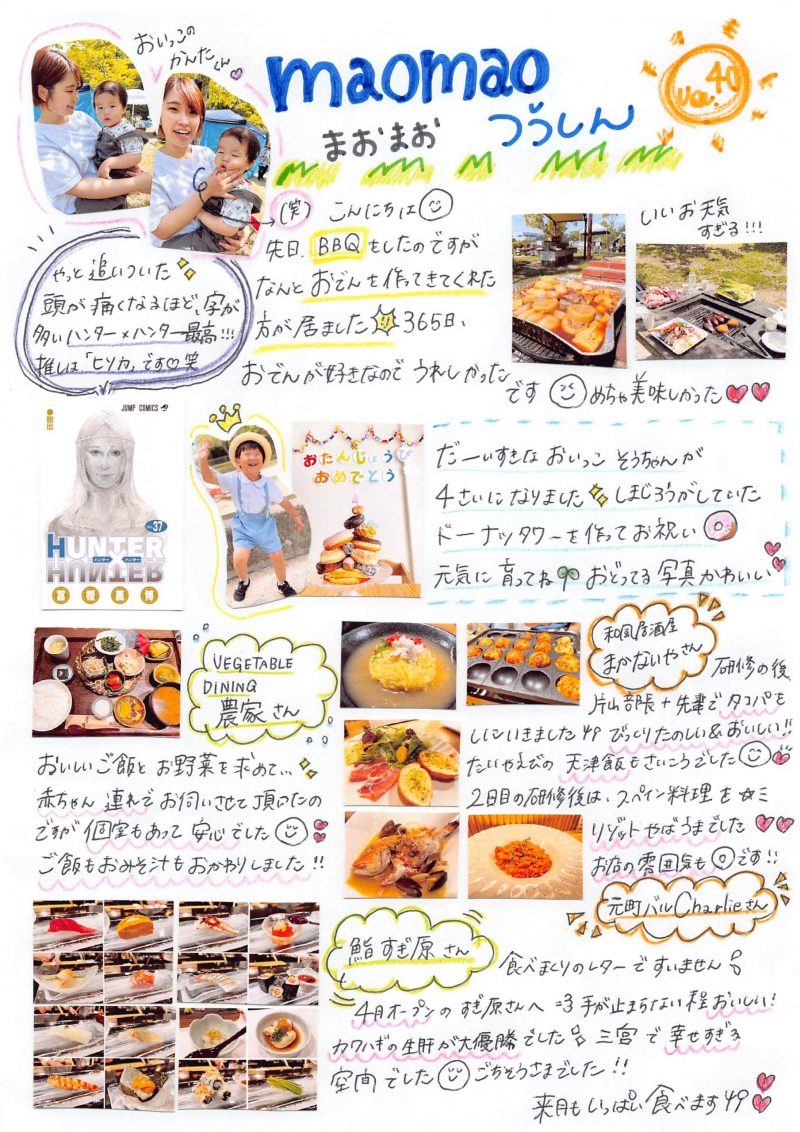 おいっこの
かんたくん
maomao
まおまお つうしん
Vol.40
(笑) こんにちは
先日、BBQをしたのですが
なんとおでんを作ってきてくれた
方が居ました 365日、
おでんが好きなので うれしかった
です めちゃ美味しかった
いいお天気
すぎる!!!
やっと追いついた
頭が痛くなるほど、字が
多いハンター×ハンター最高!!!
推しは「ヒソカ」です♡笑
JUMP COMICS
●脱出
NO.37
HUNTER
ハンター ハンター
HUNTER
冨樫義博
おたんじょうび
おめでとう
だーいすきな おいっこ そうちゃんが
4さいになりました しまじろうがしていた
ドーナッツタワーを作ってお祝い
元気に育ってね おどってる写真かわいい
VEGETABLE
DINING
農家さん
おいしいご飯と お野菜を求めて…
赤ちゃん連れでお伺いさせて頂いたの
ですが個室もあって安心でした
ご飯もおみそ汁もおかわりしました!!
和風居酒屋
まかないやさん
研修の後
片山部長+先輩でタコパを
しにいきました びっくりたのしい&おいしい!!
たいやえびの 天津飯もさいこうでした
2日目の研修後は、スペイン料理を
リゾットやばうまでした
お店の雰囲気も◎です!!
元町バルCharlieさん
鮨すぎ原さん
食べまくりのレターですいません
4月オープンのすぎ原さんへ 手が止まらない程おいしい!
カワハギの生肝が大優勝でした 三宮で幸せすぎる
空間でした ごちそうさまでした!!
来月もいっぱい食べます